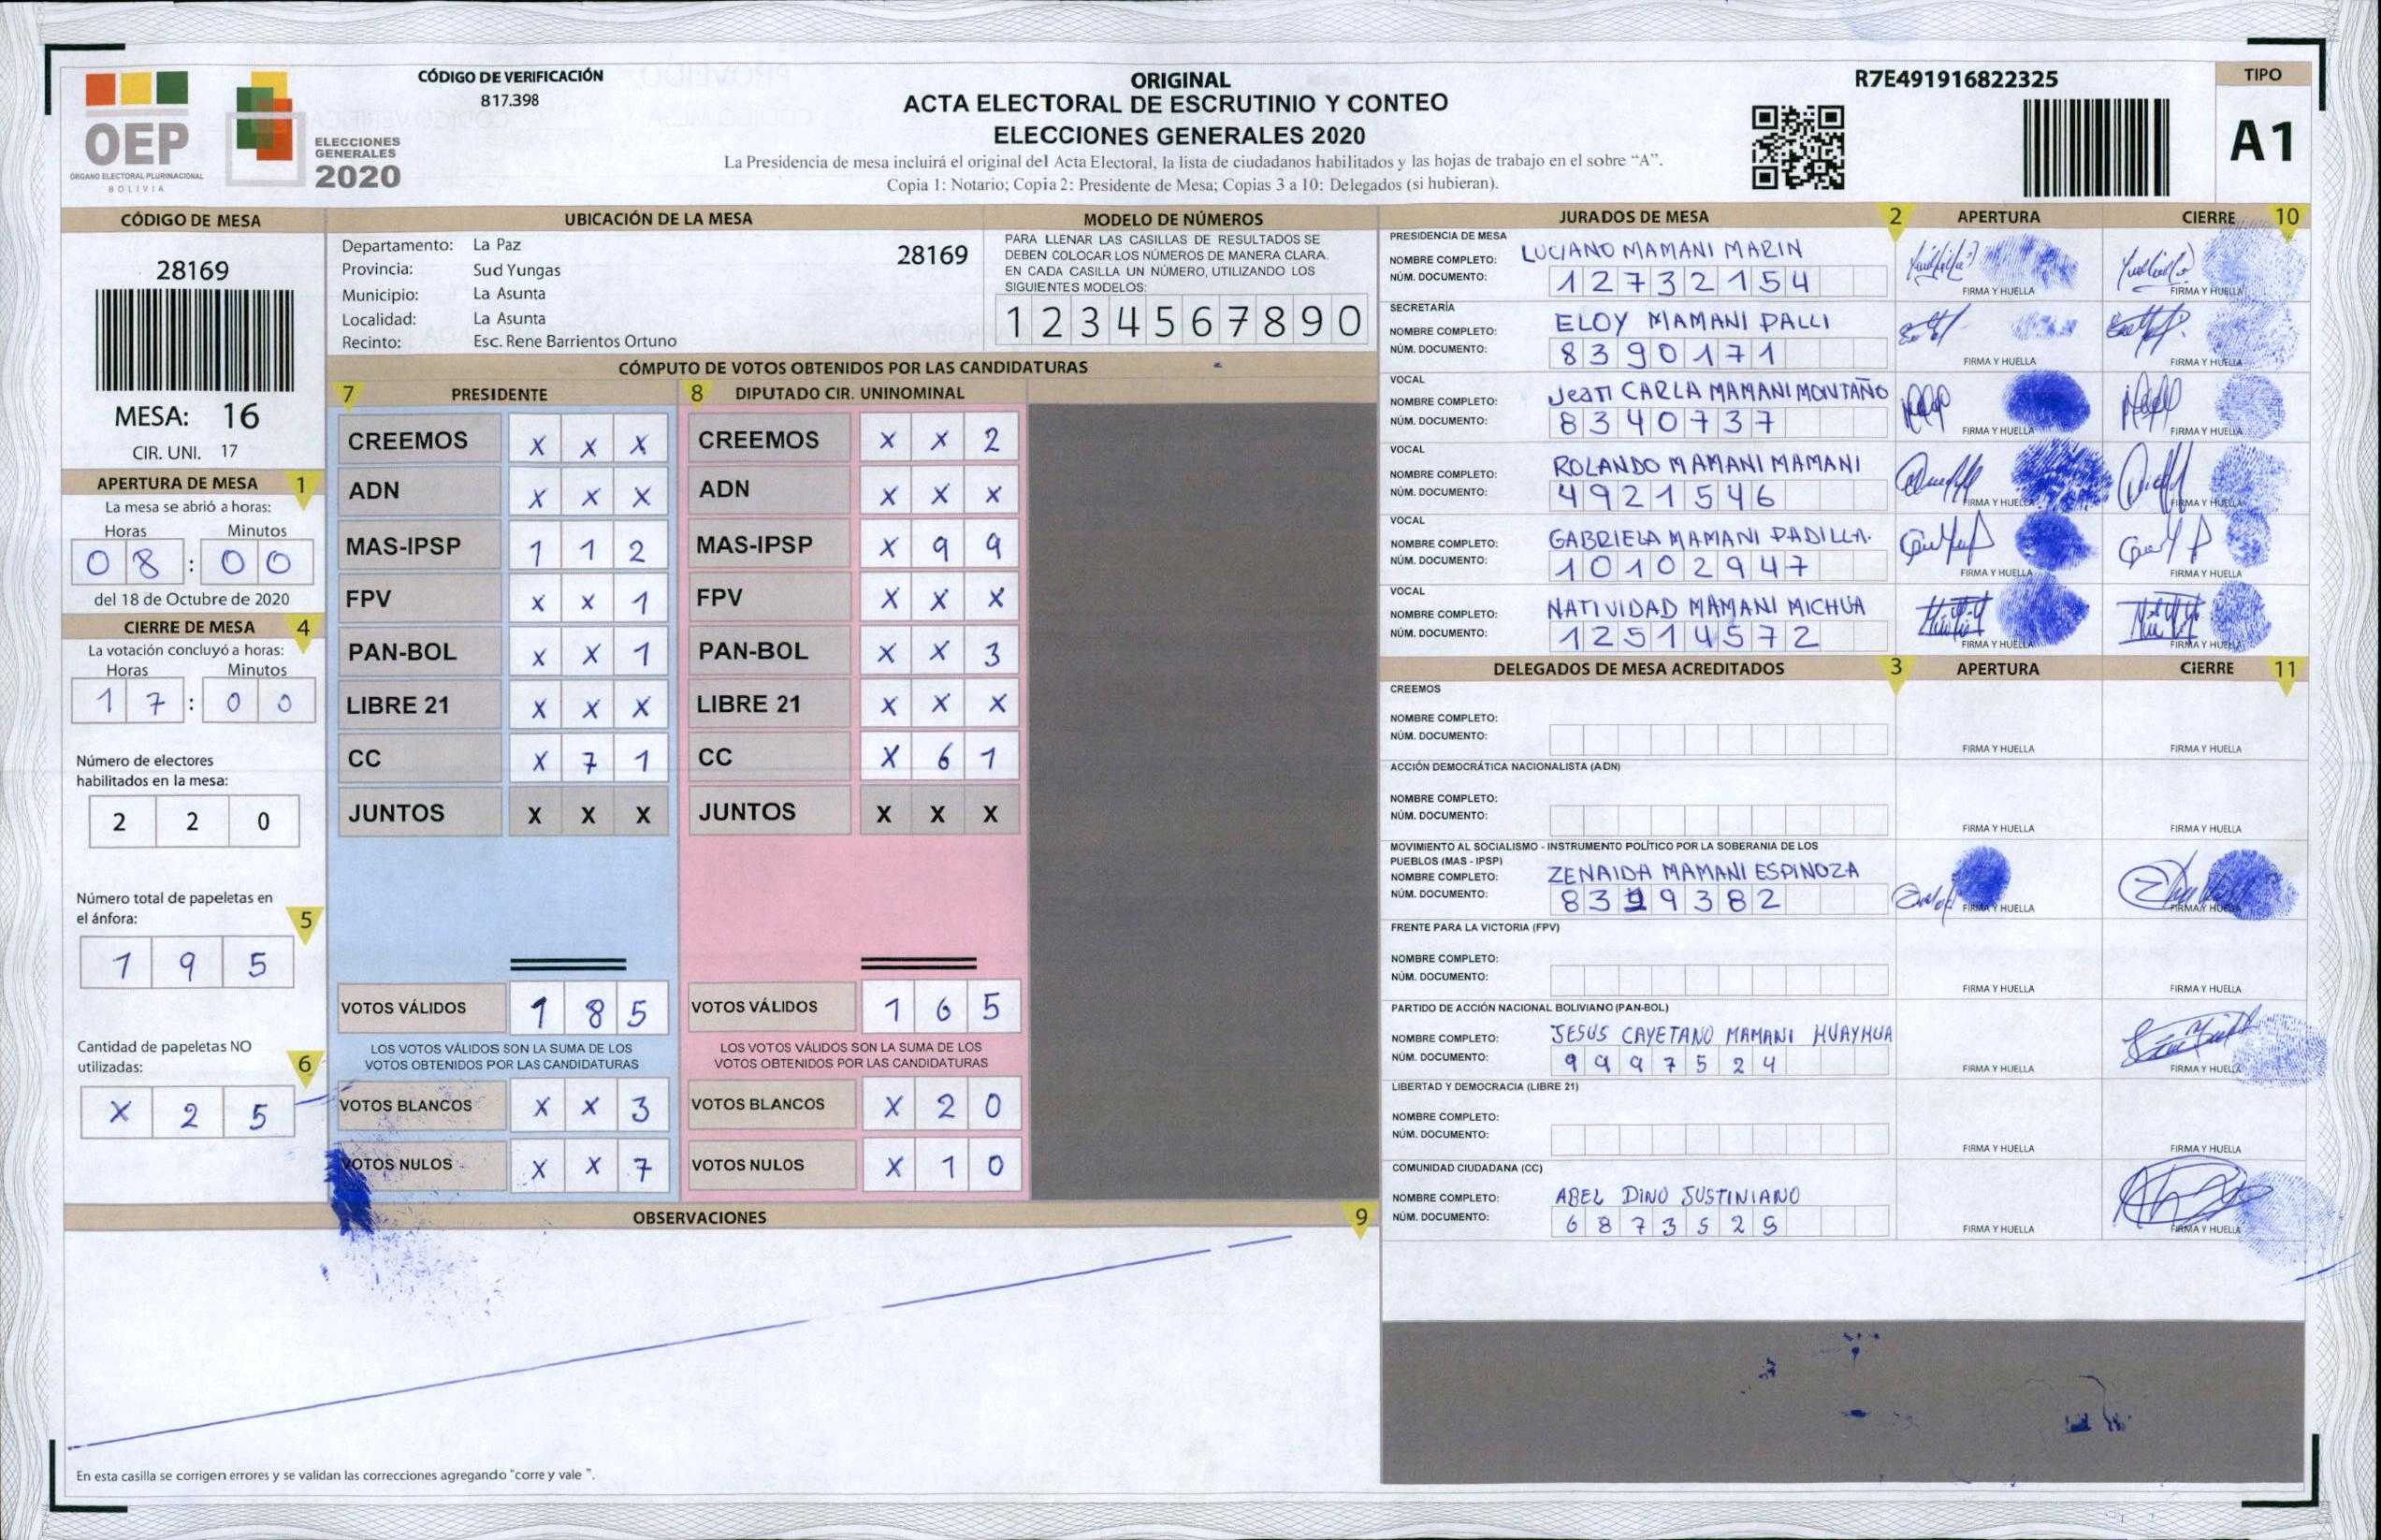 OEP
ÓRGANO ELECTORAL PLURINACIONAL
BOLIVIA
ELECCIONES
GENERALES
2020
CÓDIGO DE VERIFICACIÓN
817.398
ORIGINAL
ACTA ELECTORAL DE ESCRUTINIO Y CONTEO
ELECCIONES GENERALES 2020
La Presidencia de mesa incluirá el original del Acta Electoral, la lista de ciudadanos habilitados y las hojas de trabajo en el sobre “A”.
Copia 1: Notario; Copia 2: Presidente de Mesa; Copias 3 a 10: Delegados (si hubieran).
R7E491916822325
TIPO
A1
CÓDIGO DE MESA
28169
MESA: 16
CIR. UNI. 17
APERTURA DE MESA 1
La mesa se abrió a horas:
Horas Minutos
0 8 : 0 0
del 18 de Octubre de 2020
CIERRE DE MESA 4
La votación concluyó a horas:
Horas Minutos
1 7 : 0 0
Número de electores
habilitados en la mesa:
2 2 0
Número total de papeletas en
el ánfora: 5
1 9 5
Cantidad de papeletas NO
utilizadas: 6
X 2 5
UBICACIÓN DE LA MESA
Departamento: La Paz 28169
Provincia: Sud Yungas
Municipio: La Asunta
Localidad: La Asunta
Recinto: Esc. Rene Barrientos Ortuno
MODELO DE NÚMEROS
PARA LLENAR LAS CASILLAS DE RESULTADOS SE
DEBEN COLOCAR LOS NÚMEROS DE MANERA CLARA.
EN CADA CASILLA UN NÚMERO, UTILIZANDO LOS
SIGUIENTES MODELOS:
1 2 3 4 5 6 7 8 9 0
CÓMPUTO DE VOTOS OBTENIDOS POR LAS CANDIDATURAS
7 PRESIDENTE
CREEMOS X X X
ADN X X X
MAS-IPSP 1 1 2
FPV X X 1
PAN-BOL X X 1
LIBRE 21 X X X
CC X 7 1
JUNTOS X X X
VOTOS VÁLIDOS 1 8 5
LOS VOTOS VÁLIDOS SON LA SUMA DE LOS
VOTOS OBTENIDOS POR LAS CANDIDATURAS
VOTOS BLANCOS X X 3
VOTOS NULOS X X 7
8 DIPUTADO CIR. UNINOMINAL
CREEMOS X X 2
ADN X X X
MAS-IPSP X 9 9
FPV X X X
PAN-BOL X X 3
LIBRE 21 X X X
CC X 6 1
JUNTOS X X X
VOTOS VÁLIDOS 1 6 5
LOS VOTOS VÁLIDOS SON LA SUMA DE LOS
VOTOS OBTENIDOS POR LAS CANDIDATURAS
VOTOS BLANCOS X 2 0
VOTOS NULOS X 1 0
OBSERVACIONES 9
En esta casilla se corrigen errores y se validan las correcciones agregando "corre y vale ".
JURADOS DE MESA 2 APERTURA CIERRE 10
PRESIDENCIA DE MESA
NOMBRE COMPLETO: LUCIANO MAMANI MARIN
NÚM. DOCUMENTO: 1 2 7 3 2 1 5 4
FIRMA Y HUELLA FIRMA Y HUELLA
SECRETARÍA
NOMBRE COMPLETO: ELOY MAMANI PALLI
NÚM. DOCUMENTO: 8 3 9 0 1 7 1
FIRMA Y HUELLA FIRMA Y HUELLA
VOCAL
NOMBRE COMPLETO: Jean CARLA MAMANI MONTAÑO
NÚM. DOCUMENTO: 8 3 4 0 7 3 7
FIRMA Y HUELLA FIRMA Y HUELLA
VOCAL
NOMBRE COMPLETO: ROLANDO MAMANI MAMANI
NÚM. DOCUMENTO: 4 9 2 1 5 4 6
FIRMA Y HUELLA FIRMA Y HUELLA
VOCAL
NOMBRE COMPLETO: GABRIELA MAMANI PADILLA.
NÚM. DOCUMENTO: 1 0 1 0 2 9 4 7
FIRMA Y HUELLA FIRMA Y HUELLA
VOCAL
NOMBRE COMPLETO: NATIVIDAD MAMANI MICHUA
NÚM. DOCUMENTO: 1 2 5 1 4 5 7 2
FIRMA Y HUELLA FIRMA Y HUELLA
DELEGADOS DE MESA ACREDITADOS 3 APERTURA CIERRE 11
CREEMOS
NOMBRE COMPLETO:
NÚM. DOCUMENTO:
FIRMA Y HUELLA FIRMA Y HUELLA
ACCIÓN DEMOCRÁTICA NACIONALISTA (ADN)
NOMBRE COMPLETO:
NÚM. DOCUMENTO:
FIRMA Y HUELLA FIRMA Y HUELLA
MOVIMIENTO AL SOCIALISMO - INSTRUMENTO POLÍTICO POR LA SOBERANIA DE LOS
PUEBLOS (MAS - IPSP)
NOMBRE COMPLETO: ZENAIDA MAMANI ESPINOZA
NÚM. DOCUMENTO: 8 3 9 3 8 2
FIRMA Y HUELLA FIRMA Y HUELLA
FRENTE PARA LA VICTORIA (FPV)
NOMBRE COMPLETO:
NÚM. DOCUMENTO:
FIRMA Y HUELLA FIRMA Y HUELLA
PARTIDO DE ACCIÓN NACIONAL BOLIVIANO (PAN-BOL)
NOMBRE COMPLETO: JESUS CAYETANO MAMANI HUAYHUA
NÚM. DOCUMENTO: 9 9 9 7 5 2 4
FIRMA Y HUELLA FIRMA Y HUELLA
LIBERTAD Y DEMOCRACIA (LIBRE 21)
NOMBRE COMPLETO:
NÚM. DOCUMENTO:
FIRMA Y HUELLA FIRMA Y HUELLA
COMUNIDAD CIUDADANA (CC)
NOMBRE COMPLETO: ABEL DINO JUSTINIANO
NÚM. DOCUMENTO: 6 8 7 3 5 2 5
FIRMA Y HUELLA FIRMA Y HUELLA